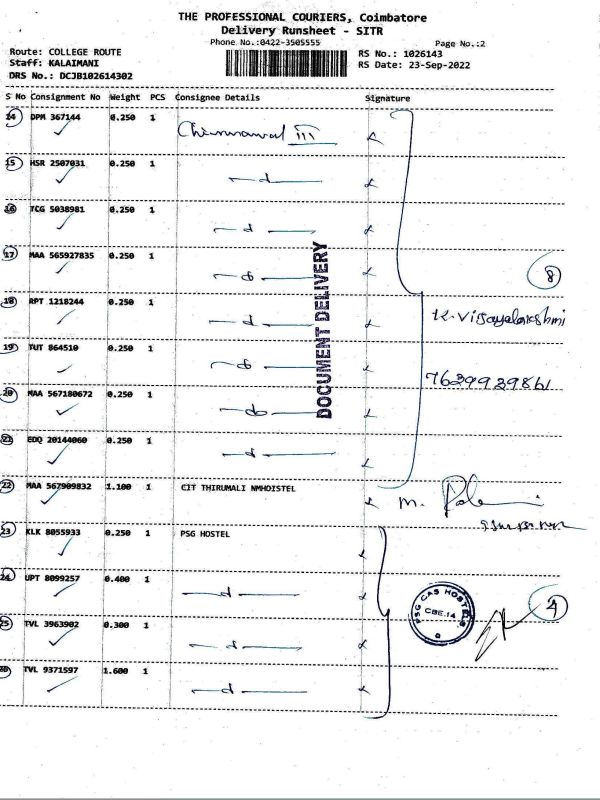 THE PROFESSIONAL COURIERS, Coimbatore
Delivery Runsheet - SITR
Phone No.:0422-3505555 Page No.:2
Route: COLLEGE ROUTE RS No.: 1026143
Staff: KALAIMANI RS Date: 23-Sep-2022
DRS No.: DCJB102614302
S No Consignment No Weight PCS Consignee Details Signature
14 DPM 367144 0.250 1
15 HSR 2507031 0.250 1 —d—
16 TCG 5038981 0.250 1 —d—
17 MAA 565927835 0.250 1 —do—
8
18 RPT 1218244 0.250 1 —d—
K. Vijayalakshmi
19 TUT 864510 0.250 1 —do—
7639939861
20 MAA 567180672 0.250 1 —do—
DOCUMENT DELIVERY
21 EDQ 20144060 0.250 1 —d—
22 MAA 567909832 1.100 1 CIT THIRUMALI NMHOISTEL M.
23 KLK 8055933 0.250 1 PSG HOSTEL
24 UPT 8099257 0.400 1 —d—
PSG CAS HOSTELS
CBE.14
4
25 TVL 3963902 0.300 1 —d—
26 TVL 9371597 1.600 1 —d—